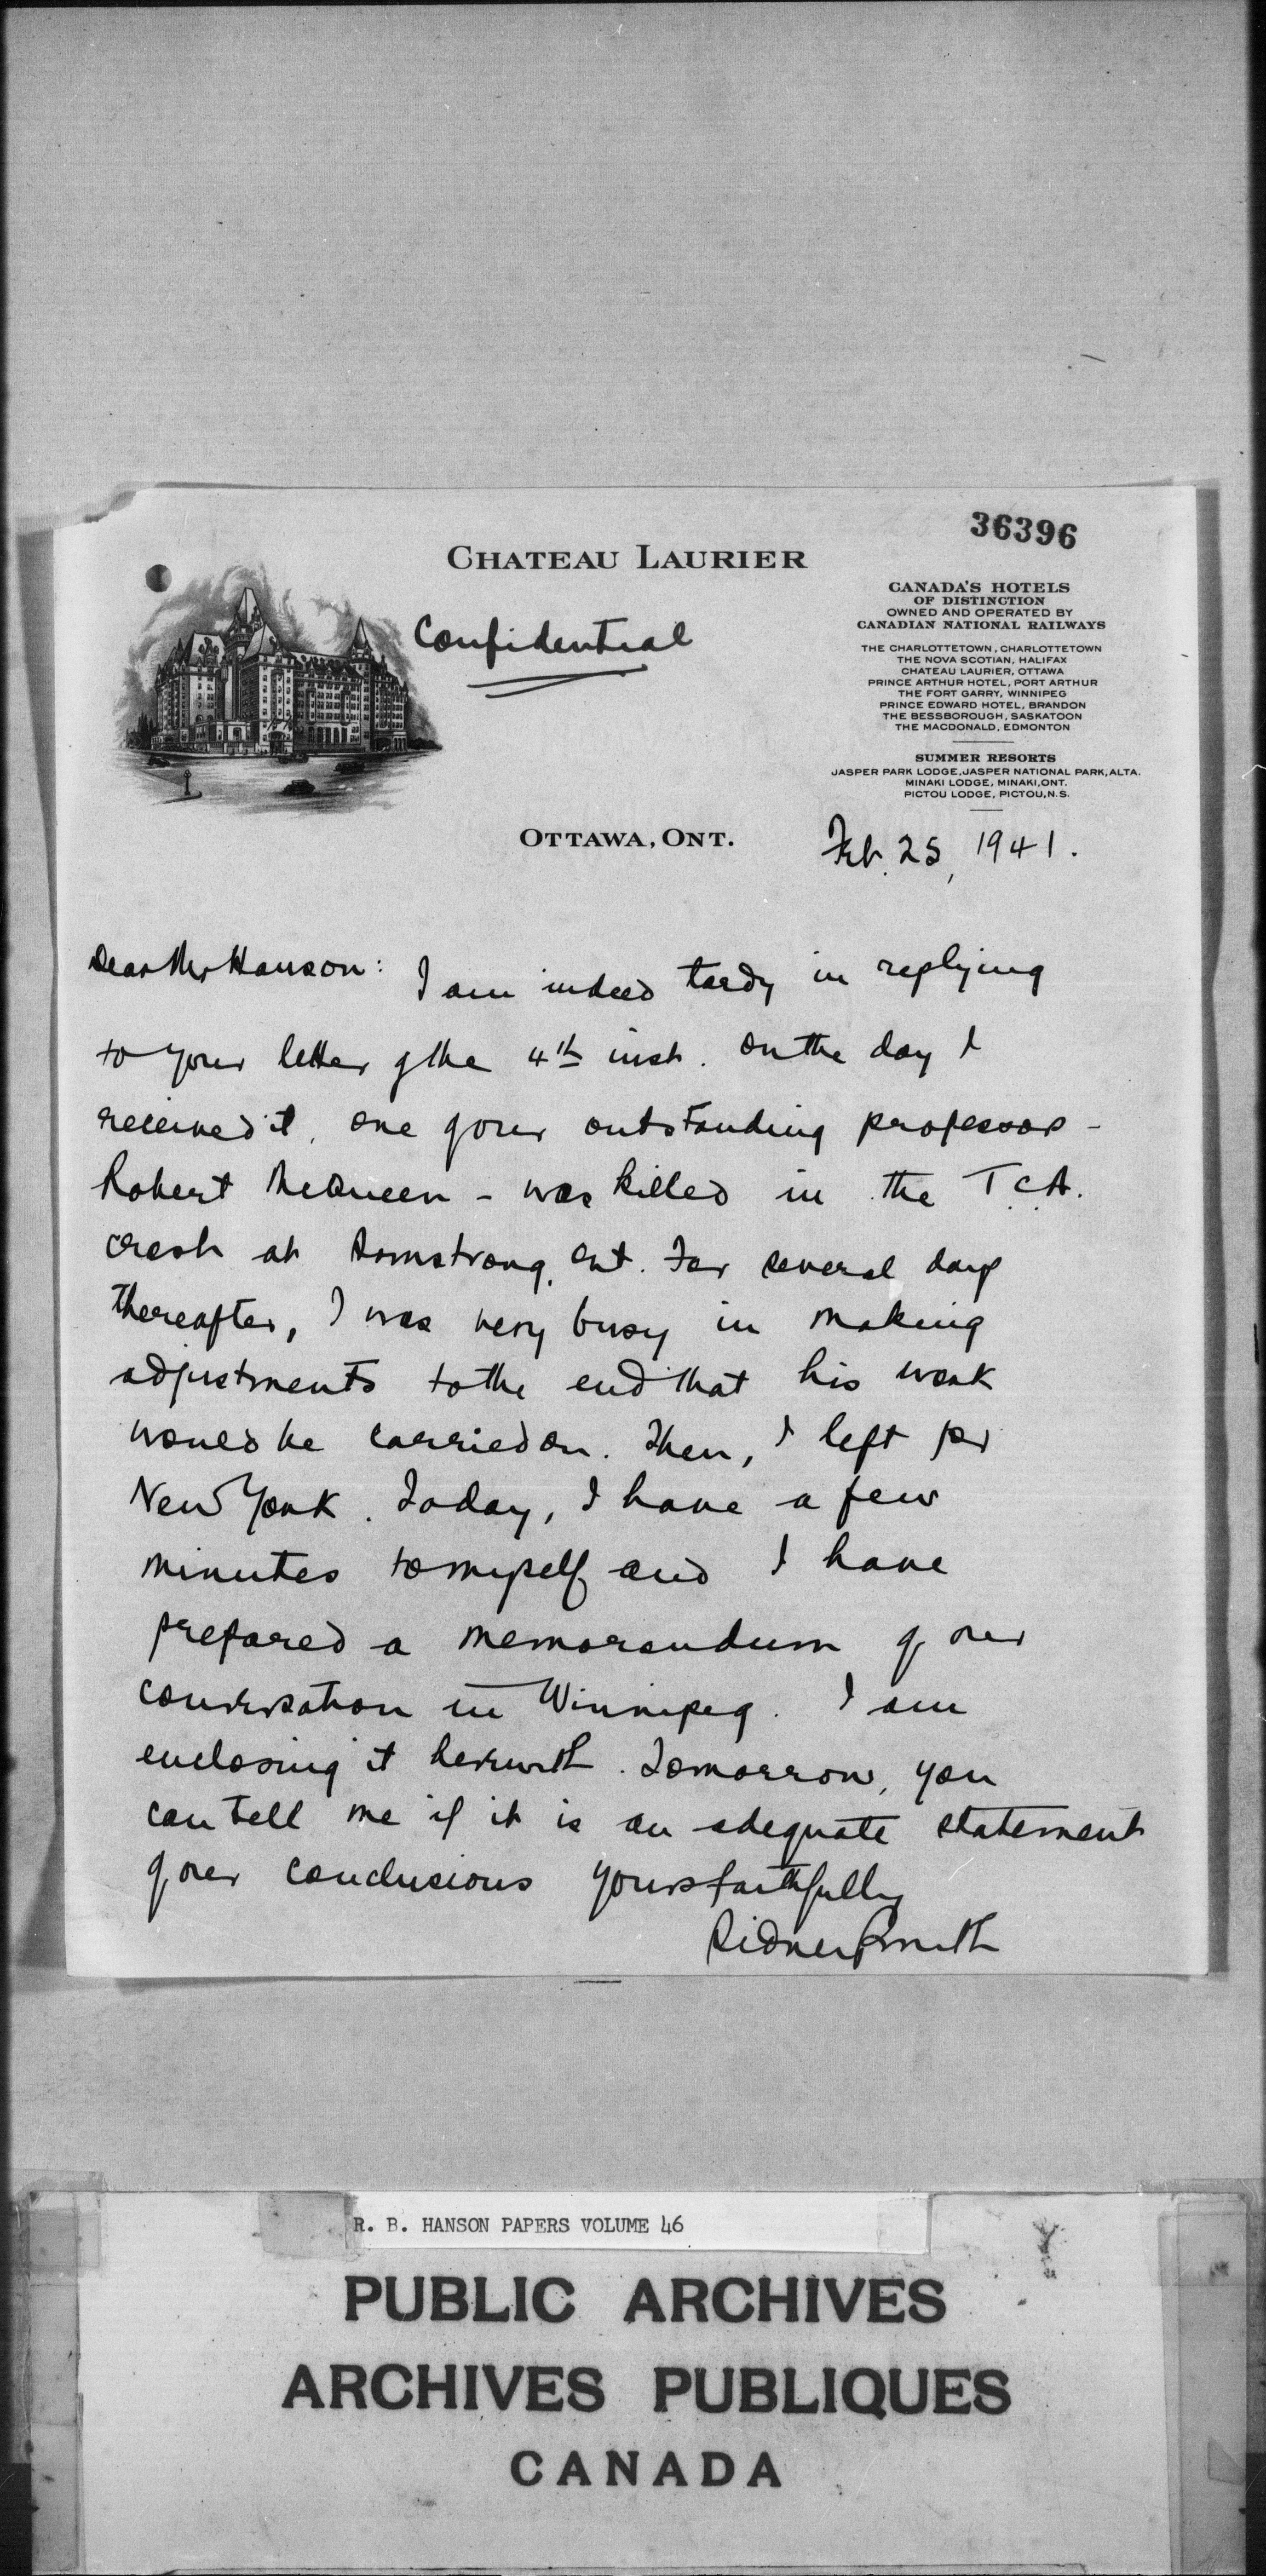 36396
CHATEAU LAURIER
CANADA'S HOTELS
OF DISTINCTION
OWNED AND OPERATED BY
CANADIAN NATIONAL RAILWAYS
Confidential
THE CHARLOTTETOWN, CHARLOTTETOWN
THE NOVA SCOTIAN, HALIFAX
CHATEAU LAURIER, OTTAWA
PRINCE ARTHUR HOTEL, PORT ARTHUR
THE FORT GARRY, WINNIPEG
PRINCE EDWARD HOTEL, BRANDON
THE BESSBOROUGH, SASKATOON
THE MACDONALD, EDMONTON
SUMMER RESORTS
JASPER PARK LODGE, JASPER NATIONAL PARK, ALTA.
MINAKI LODGE, MINAKI, ONT.
PICTOU LODGE, PICTOU, N.S.
OTTAWA, ONT.
Feb. 25, 1941.
Dear Mr Hanson:
I am indeed tardy in replying
to your letter of the 4th inst. On the day I
received it, one of our outstanding professors -
Robert McQueen - was killed in the T.C.A.
crash at Armstrong, Ont. For several days
thereafter, I was very busy in making
adjustments to the end that his work
would be carried on. Then, I left for
New York. Today, I have a few
minutes to myself and I have
prepared a memorandum of our
conversation in Winnipeg. I am
enclosing it herewith. Tomorrow, you
can tell me if it is an adequate statement
of our conclusions
Yours faithfully
Sidney Smith
R. B. HANSON PAPERS VOLUME 46
PUBLIC ARCHIVES
ARCHIVES PUBLIQUES
CANADA